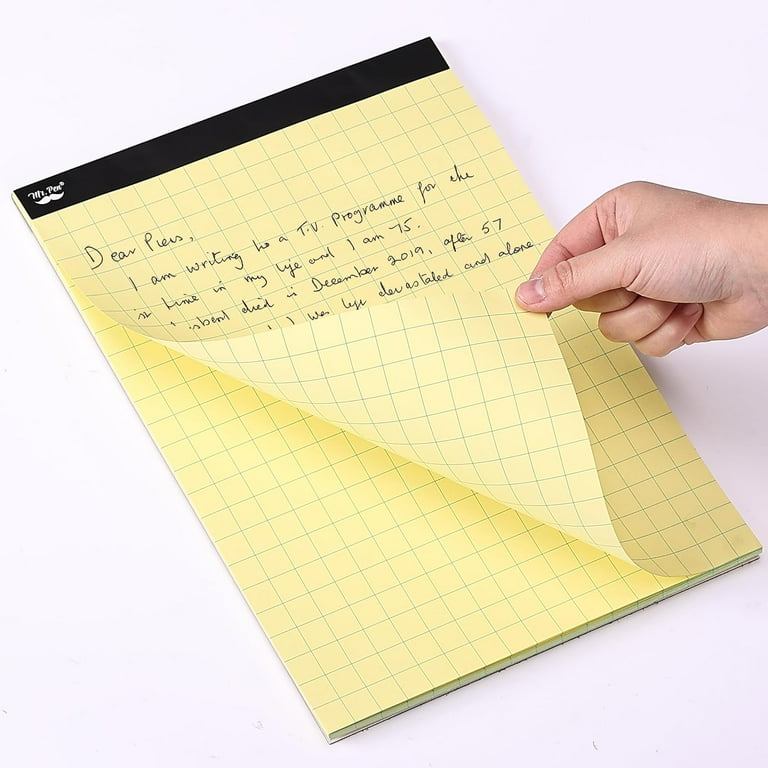 Mr. Pen®
Dear Piers,
I am writing to a T.V. Programme for the
1st time in my life and I am 75.
died in December 2019, after 57
I was left devastated and alone.